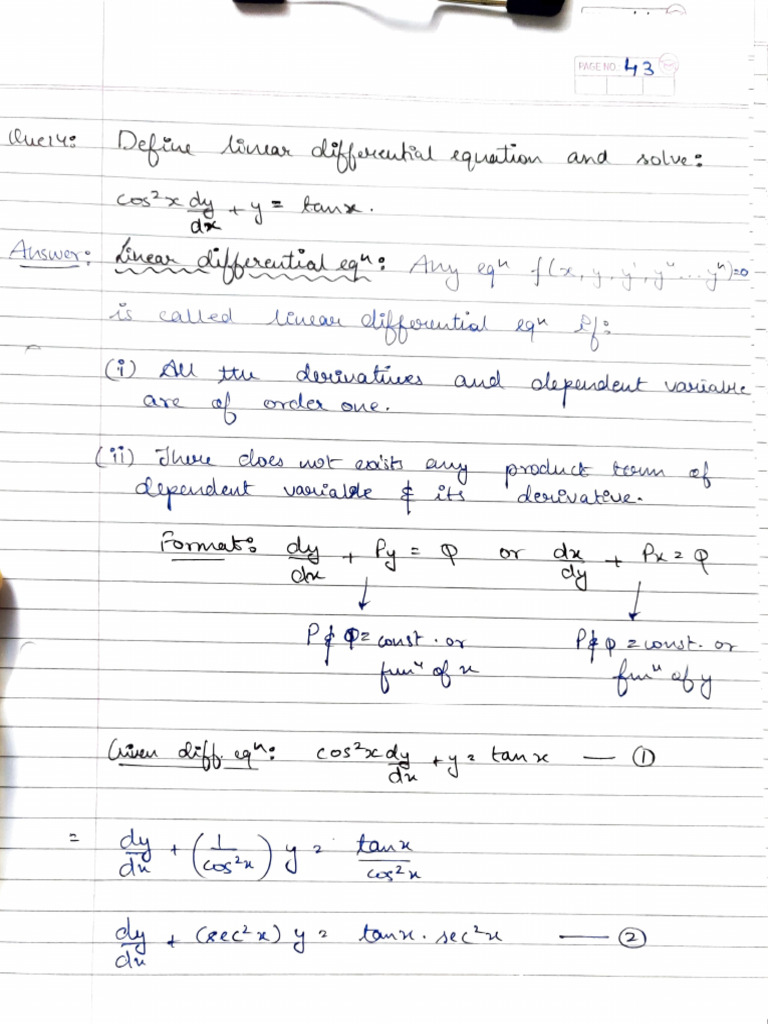 PAGE NO. 43
Que14: Define linear differential equation and solve:
cos²x dy/dx + y = tanx.
Answer: Linear differential eqⁿ: Any eqⁿ f(x, y, y', y'' ... yⁿ)=0
is called linear differential eqⁿ if:
(i) All the derivatives and dependent variable
are of order one.
(ii) There does not exists any product term of
dependent variable & its derivative.
Format: dy/dx + Py = Q or dx/dy + Px = Q
P & Q = const. or P & Q = const. or
funⁿ of x funⁿ of y
Given diff. eqⁿ: cos²x dy/dx + y = tanx — ①
= dy/dx + (1/cos²x) y = tanx/cos²x
dy/dx + (sec²x) y = tanx . sec²x — ②